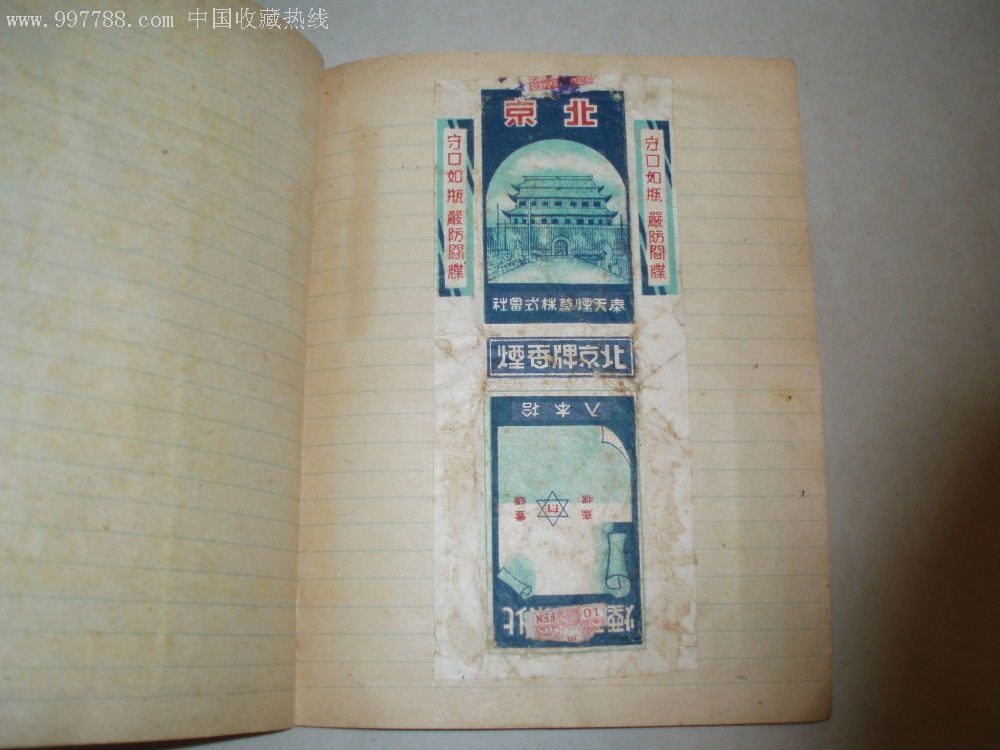 www.997788.com 中国收藏热线
北京
守口如瓶 嚴防間牒
守口如瓶 嚴防間牒
奉天煙草株式會社
北京牌香煙
拾本入
商標
登錄
10
FEN